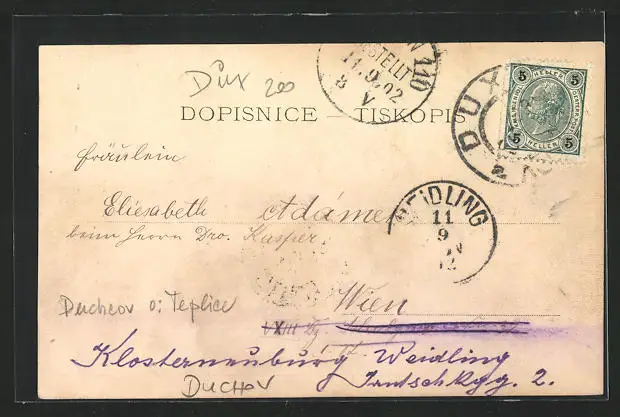 Dux 200
BESTELLT
110
11.9.02
8 V
DOPISNICE – TISKOPIS
DUX
5 HELLER 5
5 HELLER 5
Fräulein
Elisabeth Adámek
beim Herrn Dro. Kasper
WEIDLING
11
9
Wien
Duchcov o: Teplice
XVIII
Klosterneuburg Weidling
DUCHOV
2.